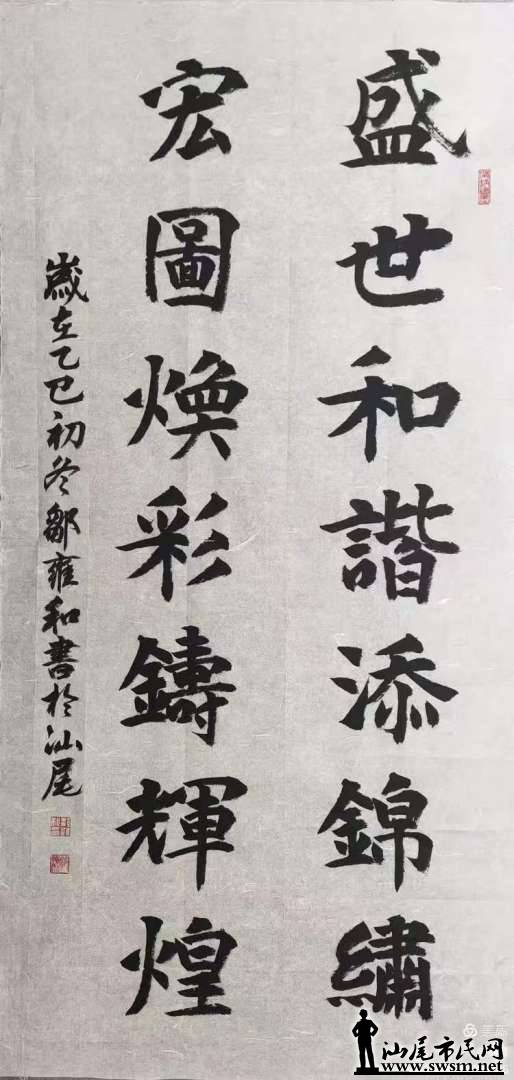 盛世和諧添錦繡
宏圖煥彩鑄輝煌
歲在乙巳初冬鄒雍和書於汕尾
汕尾市民网
www.swsm.net